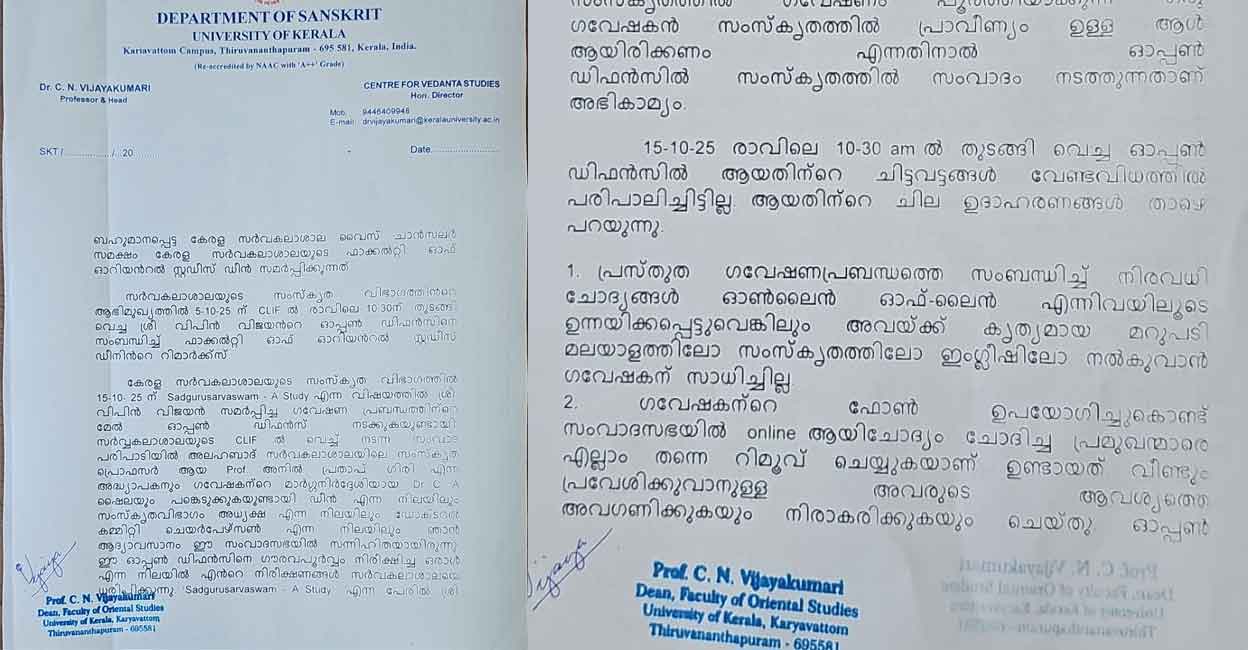 DEPARTMENT OF SANSKRIT
UNIVERSITY OF KERALA
Kariavattom Campus, Thiruvananthapuram - 695 581, Kerala, India.
(Re-accredited by NAAC with 'A++' Grade)
Dr. C. N. VIJAYAKUMARI
Professor & Head
CENTRE FOR VEDANTA STUDIES
Hon. Director
Mob. 9446409946
E-mail: drvijayakumari@keralauniversity.ac.in
SKT/................/..20
Date........................
ബഹുമാനപ്പെട്ട കേരള സർവകലാശാല വൈസ് ചാൻസലർ
സമക്ഷം കേരള സർവകലാശാലയുടെ ഫാക്കൽറ്റി ഓഫ്
ഓറിയൻറൽ സ്റ്റഡീസ് ഡീൻ സമർപ്പിക്കുന്നത്
സർവകലാശാലയുടെ സംസ്കൃത വിഭാഗത്തിൻറെ
ആഭിമുഖ്യത്തിൽ 5-10-25 ന് CLIF ൽ രാവിലെ 10.30ന് തുടങ്ങി
വെച്ച ശ്രീ വിപിൻ വിജയൻറെ ഓപ്പൺ ഡിഫൻസിനെ
സംബന്ധിച്ച് ഫാക്കൽറ്റി ഓഫ് ഓറിയൻറൽ സ്റ്റഡീസ്
ഡീനിൻറെ റിമാർക്ക്സ്
കേരള സർവകലാശാലയുടെ സംസ്കൃത വിഭാഗത്തിൽ
15-10- 25 ന് Sadgurusarvaswam - A Study എന്ന വിഷയത്തിൽ ശ്രീ
വിപിൻ വിജയൻ സമർപ്പിച്ച ഗവേഷണ പ്രബന്ധത്തിൻറെ
മേൽ ഓപ്പൺ ഡിഫൻസ് നടക്കുകയുണ്ടായി
സർവ്വകലാശാലയുടെ CLIF ൽ വെച്ച് നടന്ന സംവാദ
പരിപാടിയിൽ അലഹബാദ് സർവകലാശാലയിലെ സംസ്കൃത
പ്രൊഫസർ ആയ Prof. അനിൽ പ്രതാപ് ഗിരി എന്ന
അദ്ധ്യാപകനും ഗവേഷകൻറെ മാർഗ്ഗനിർദ്ദേശിയായ Dr C A
ഷൈലയും പങ്കെടുക്കുകയുണ്ടായി ഡീൻ എന്ന നിലയിലും
സംസ്കൃതവിഭാഗം അധ്യക്ഷ എന്ന നിലയിലും ഡോക്ടറൽ
കമ്മിറ്റി ചെയർപേഴ്സൺ എന്ന നിലയിലും ഞാൻ
ആദ്യാവസാനം ഈ സംവാദസഭയിൽ സന്നിഹിതയായിരുന്നു
ഈ ഓപ്പൺ ഡിഫൻസിനെ ഗൗരവപൂർവ്വം നിരീക്ഷിച്ച ഒരാൾ
എന്ന നിലയിൽ എൻറെ നിരീക്ഷണങ്ങൾ സർവകലാശാലയെ
ധരിപ്പിക്കുന്നു. 'Sadgurusarvaswam - A Study എന്ന പേരിൽ ശ്രീ
Vijaya
Prof. C. N. Vijayakumari
Dean, Faculty of Oriental Studies
University of Kerala, Karyavattom
Thiruvananthapuram - 695581
സംസ്കൃതത്തിൽ ഗവേഷണം പൂർത്തിയാക്കുന്ന ഒരു
ഗവേഷകൻ സംസ്കൃതത്തിൽ പ്രാവീണ്യം ഉള്ള ആൾ
ആയിരിക്കണം എന്നതിനാൽ ഓപ്പൺ
ഡിഫൻസിൽ സംസ്കൃതത്തിൽ സംവാദം നടത്തുന്നതാണ്
അഭികാമ്യം.
15-10-25 രാവിലെ 10-30 am ൽ തുടങ്ങി വെച്ച ഓപ്പൺ
ഡിഫൻസിൽ ആയതിന്റെ ചിട്ടവട്ടങ്ങൾ വേണ്ടവിധത്തിൽ
പരിപാലിച്ചിട്ടില്ല. ആയതിന്റെ ചില ഉദാഹരണങ്ങൾ താഴെ
പറയുന്നു.
1. പ്രസ്തുത ഗവേഷണപ്രബന്ധത്തെ സംബന്ധിച്ച് നിരവധി
ചോദ്യങ്ങൾ ഓൺലൈൻ ഓഫ്-ലൈൻ എന്നിവയിലൂടെ
ഉന്നയിക്കപ്പെട്ടുവെങ്കിലും അവയ്ക്ക് കൃത്യമായ മറുപടി
മലയാളത്തിലോ സംസ്കൃതത്തിലോ ഇംഗ്ലീഷിലോ നൽകുവാൻ
ഗവേഷകന് സാധിച്ചില്ല.
2. ഗവേഷകന്റെ ഫോൺ ഉപയോഗിച്ചുകൊണ്ട്
സംവാദസഭയിൽ online ആയിചോദ്യം ചോദിച്ച പ്രമുഖന്മാരെ
എല്ലാം തന്നെ റിമൂവ് ചെയ്യുകയാണ് ഉണ്ടായത് വീണ്ടും
പ്രവേശിക്കുവാനുള്ള അവരുടെ ആവശ്യത്തെ
അവഗണിക്കുകയും നിരാകരിക്കുകയും ചെയ്തു. ഓപ്പൺ
Vijaya
Prof. C. N. Vijayakumari
Dean, Faculty of Oriental Studies
University of Kerala, Karyavattom
Thiruvananthapuram - 695581